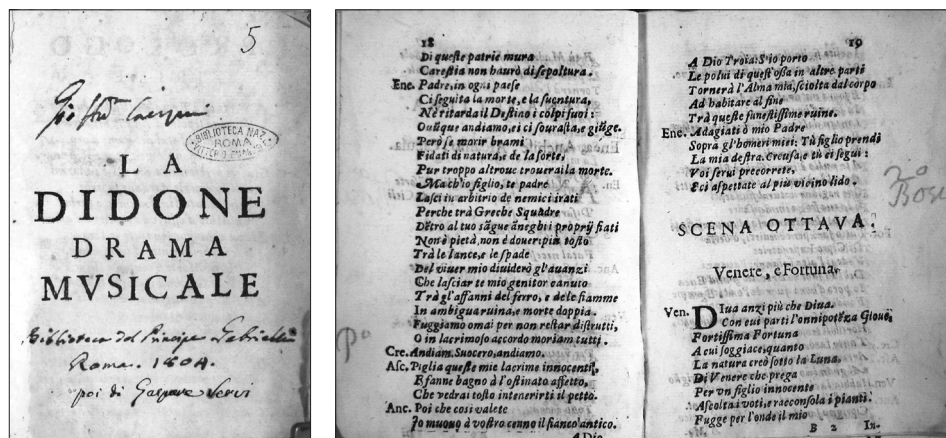 5
BIBLIOTECA NAZ.
ROMA
VITTORIO EMANUELE
LA
DIDONE
DRAMA
MVSICALE
Biblioteca del Principe Gabrielli
Roma. 1804.
poi di Gaspare Servi
18
Di queste patrie mura
Carestia non haurò di sepoltura.
Ene. Padre, in ogni paese
Ci seguita la morte, e la suentura,
Nè ritarda il Destino i colpi suoi:
Ouũque andiamo, ei ci sourasta, e giũge.
Però se morir brami
Fidati di natura, e de la sorte,
Pur troppo altroue troueraila morte.
Ma ch'io figlio, te padre
Lasci in arbitrio de nemici irati
Perche trà Greche Squadre
Dẽtro al tuo sãgue ãneghi i proprÿ fiati
Non è pietà, non è douer: più tosto
Trà le lance, e le spade
Del viuer mio diuiderò gl'auanzi
Che lasciar te mio genitor canuto
Trà gl'affanni del ferro, e dele fiamme
In ambigua ruina, e morte doppia.
Fuggiamo omai per non restar distrutti,
O in lacrimoso accordo moriam tutti.
Cre. Andiam, Suocero, andiamo.
Asc. Piglia queste mie lacrime innocenti,
E fanne bagno à l'ostinato affetto,
Che vedrai tosto intenerirti il petto.
Anc. Poi che cosi valete
Io muouo à vostro cenno il fianco antico.
A Dio
Pº
19
A Dio Troia: S'io porto
Le polui di quest'ossa in altre parti
Tornerà l'Alma mia, sciolta dal corpo
Ad habitare al fine
Trà queste funestissime ruine.
Ene. Adagiati ò mio Padre
Soprà gl'homeri miei: Tù figlio prendi
La mia destra. Creusa, e tù ci segui:
Voi serui precorrete,
E ci aspettate al più vicino lido.
2º
Bosc
SCENA OTTAVA.
Venere, e Fortuna.
Ven. DIua anzi più che Diua.
Con cui parti l'onnipotẽza Gioue,
Fortissima Fortuna
A cui soggiace, quanto
La natura creò sotto la Luna.
Di Venere che prega
Per vn figlio innocente
Ascolta i voti, e racconsola i pianti.
Fugge per l'onde il mio
B 2 In-